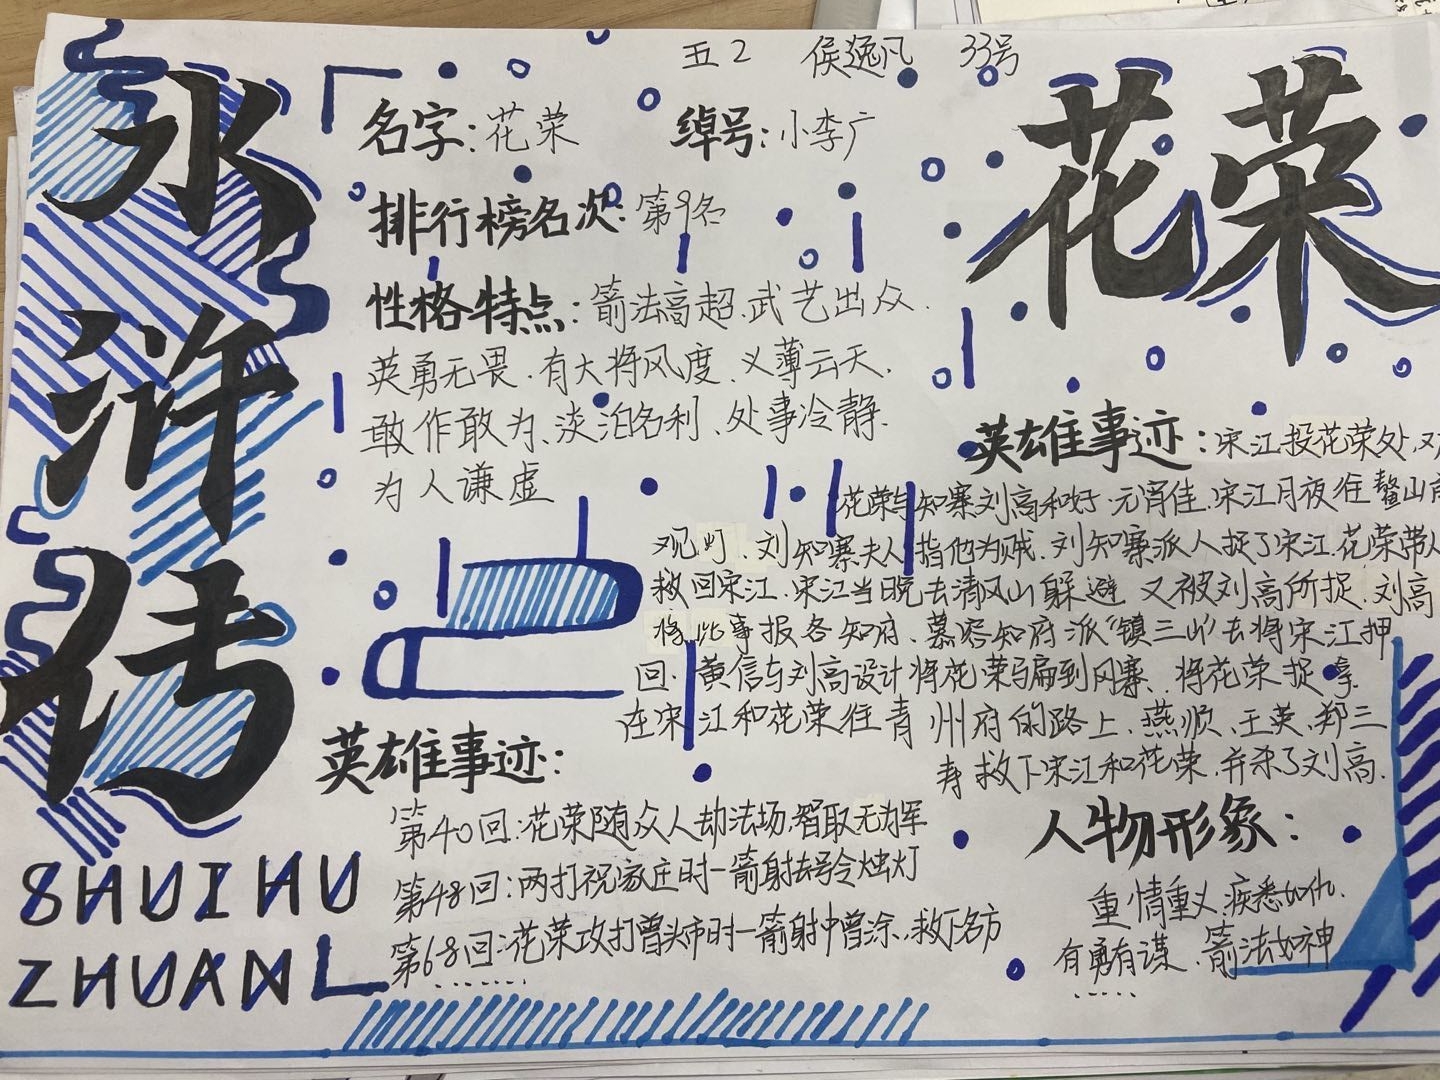 五2 侯逸凡 33号
水浒传
SHUI HU
ZHUAN
花荣
名字:花荣 绰号:小李广
排行榜名次:第9名
性格特点:箭法高超、武艺出众.
英勇无畏、有大将风度、义薄云天、
敢作敢为、淡泊名利、处事冷静.
为人谦虚
英雄事迹:宋江投花荣处,又
花荣与知寨刘高和好.元宵佳.宋江月夜往鳌山
观灯、刘知寨夫人指他为贼.刘知寨派人捉了宋江.花荣带人
救回宋江.宋江当晚去清风山躲避 又被刘高所捉.刘高
将此事报各知府、慕容知府派"镇三山"去将宋江押
回.黄信与刘高设计将花荣骗到风寨.将花荣捉拿
在宋江和花荣往青州府的路上.燕顺、王英、郑三
寿救下宋江和花荣.并杀了刘高.
英雄事迹:
第40回:花荣随众人劫法场,智取无为军
第48回:两打祝家庄时一箭射去号令烛灯
第68回:花荣攻打曾头市时一箭射中曾涂,救下各方
.......
人物形象:
重情重义、疾恶如仇.
有勇有谋、箭法如神
.....